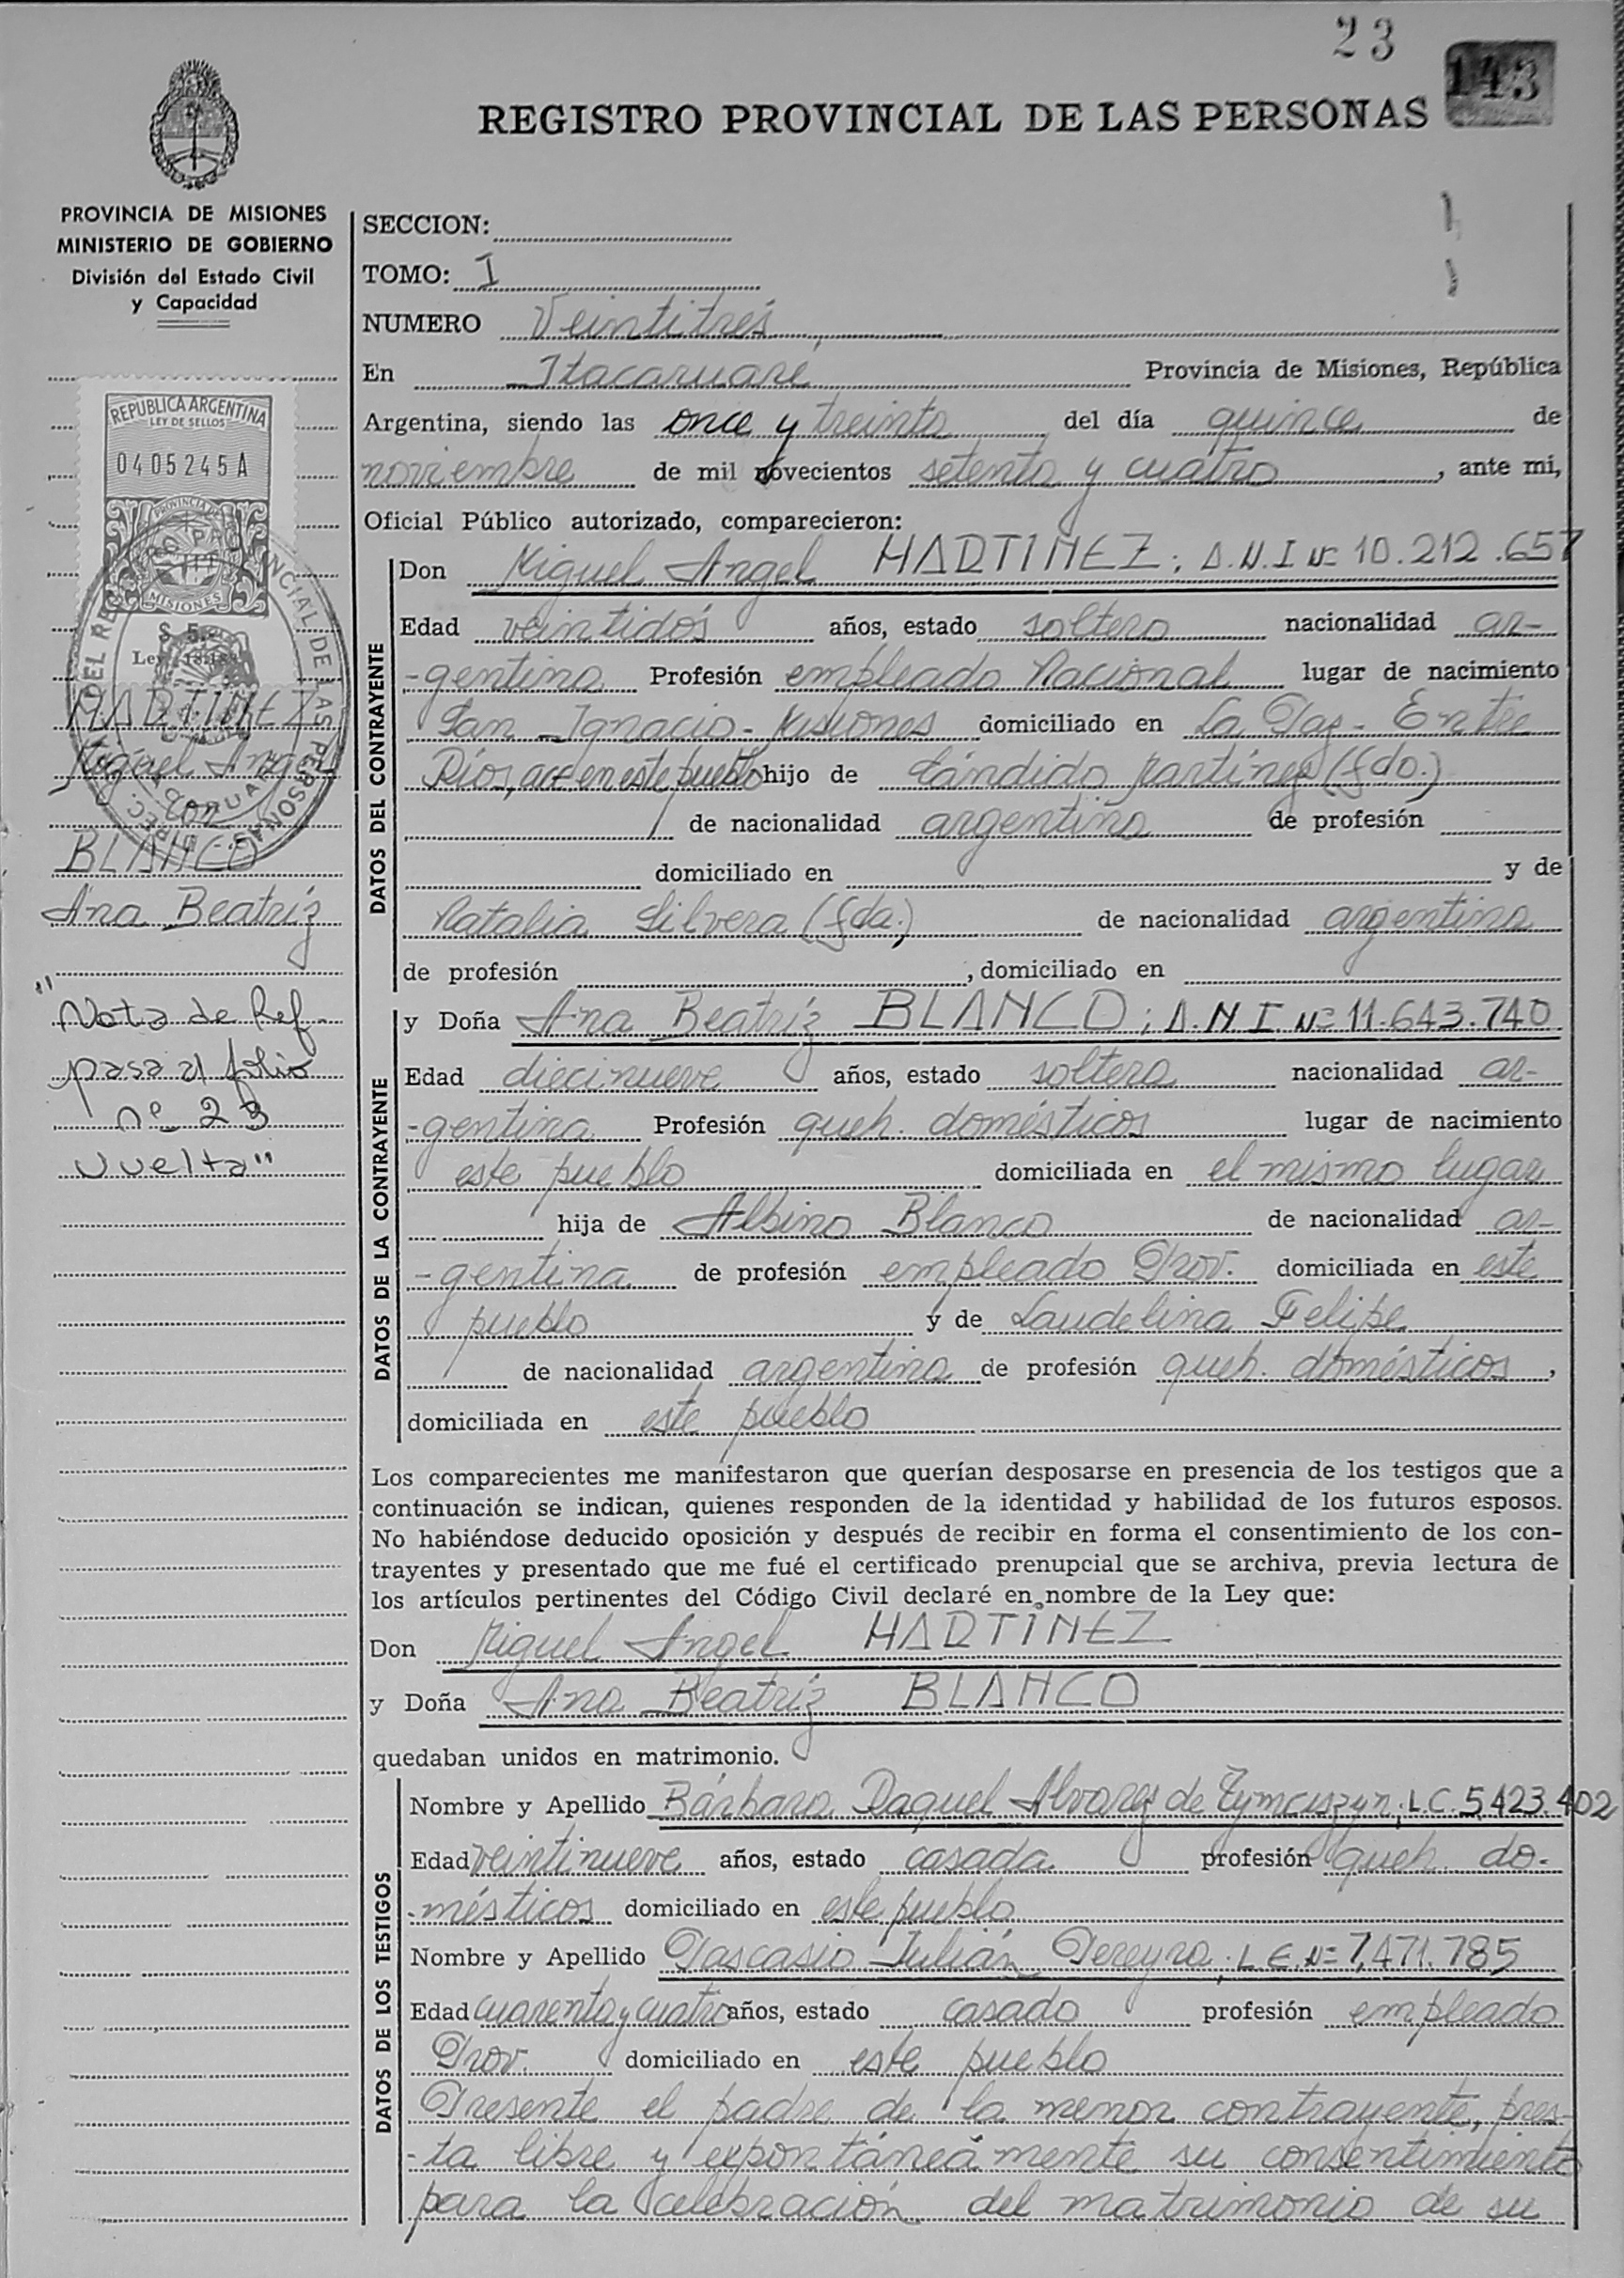 23
143
REGISTRO PROVINCIAL DE LAS PERSONAS
PROVINCIA DE MISIONES
MINISTERIO DE GOBIERNO
División del Estado Civil
y Capacidad
REPUBLICA ARGENTINA
LEY DE SELLOS
0405245A
PROVINCIA DE
MISIONES
$ 5.-
Ley
DEL REGISTRO PROVINCIAL DE LAS PERSONAS
MARTINEZ
Miguel Angel
con
BLANCO
Ana Beatriz
"Nota de Ref.
pasa al folio
nº 23
vuelta"
SECCION:
TOMO: I
NUMERO Veintitrés
En Itacaruaré Provincia de Misiones, República
Argentina, siendo las once y treinta del día quince de
noviembre de mil novecientos setenta y cuatro, ante mi,
Oficial Público autorizado, comparecieron:
DATOS DEL CONTRAYENTE
Don Miguel Angel MARTINEZ; D.N.I Nº 10.212.657
Edad veintidós años, estado soltero nacionalidad ar-
-gentina Profesión empleado Nacional lugar de nacimiento
San Ignacio - Misiones domiciliado en La Paz - Entre
Ríos, acc en este pueblo hijo de Cándido Martínez (fdo.)
de nacionalidad argentina de profesión
domiciliado en y de
Natalia Silvera (fda.) de nacionalidad argentina
de profesión , domiciliado en
DATOS DE LA CONTRAYENTE
y Doña Ana Beatriz BLANCO; D.N.I Nº 11.643.740
Edad diecinueve años, estado soltera nacionalidad ar-
-gentina Profesión queh. domésticos lugar de nacimiento
este pueblo domiciliada en el mismo lugar
hija de Albino Blanco de nacionalidad ar-
-gentina de profesión empleado Prov. domiciliada en este
pueblo y de Laudelina Felipe
de nacionalidad argentina de profesión queh. domésticos,
domiciliada en este pueblo
Los comparecientes me manifestaron que querían desposarse en presencia de los testigos que a
continuación se indican, quienes responden de la identidad y habilidad de los futuros esposos.
No habiéndose deducido oposición y después de recibir en forma el consentimiento de los con-
trayentes y presentado que me fué el certificado prenupcial que se archiva, previa lectura de
los artículos pertinentes del Código Civil declaré en nombre de la Ley que:
Don Miguel Angel MARTINEZ
y Doña Ana Beatriz BLANCO
quedaban unidos en matrimonio.
DATOS DE LOS TESTIGOS
Nombre y Apellido Bárbara Raquel Alvarez de Tymciszyn; L.C. 5.423.402
Edad veintinueve años, estado casada profesión queh. do-
-mésticos domiciliado en este pueblo
Nombre y Apellido Pascasio Julián Pereyra; L.E. Nº 7.471.785
Edad cuarenta y cuatro años, estado casado profesión empleado
Prov. domiciliado en este pueblo
Presente el padre de la menor contrayente, pres-
-ta libre y expontáneamente su consentimiento
para la celebración del matrimonio de su